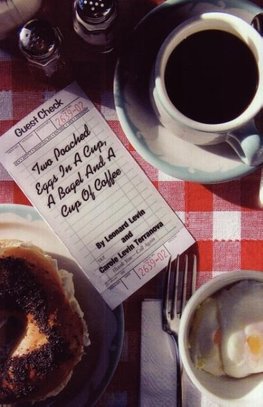 Guest Check
2639-02
Two Poached
Eggs In A Cup,
A Bagel And A
Cup Of Coffee
By Leonart Levin
and
Carole Levin Terranova
2639-02